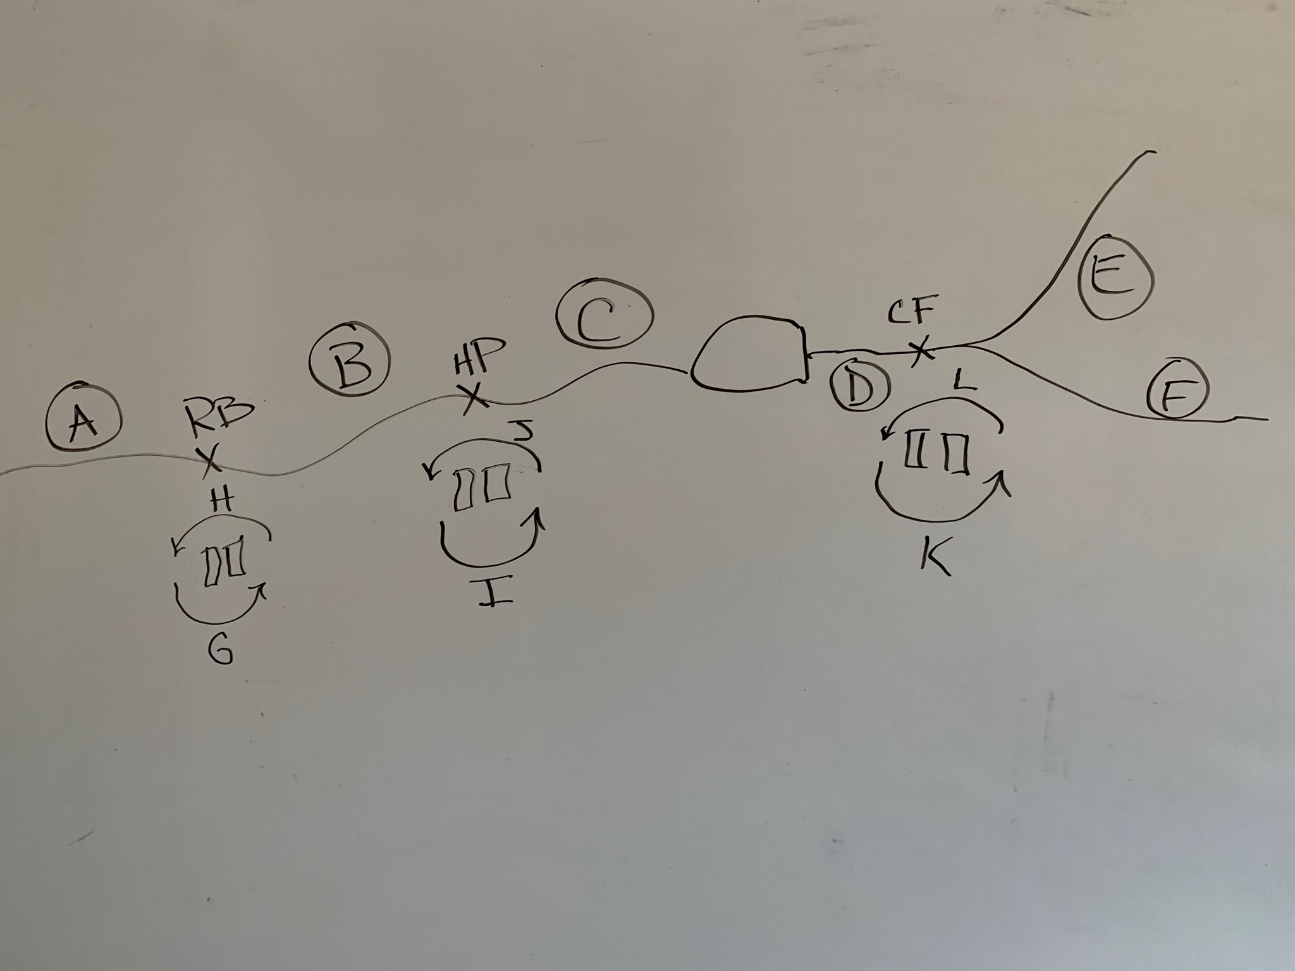 A
RB
H
G
B
HP
J
I
C
D
CF
L
K
E
F